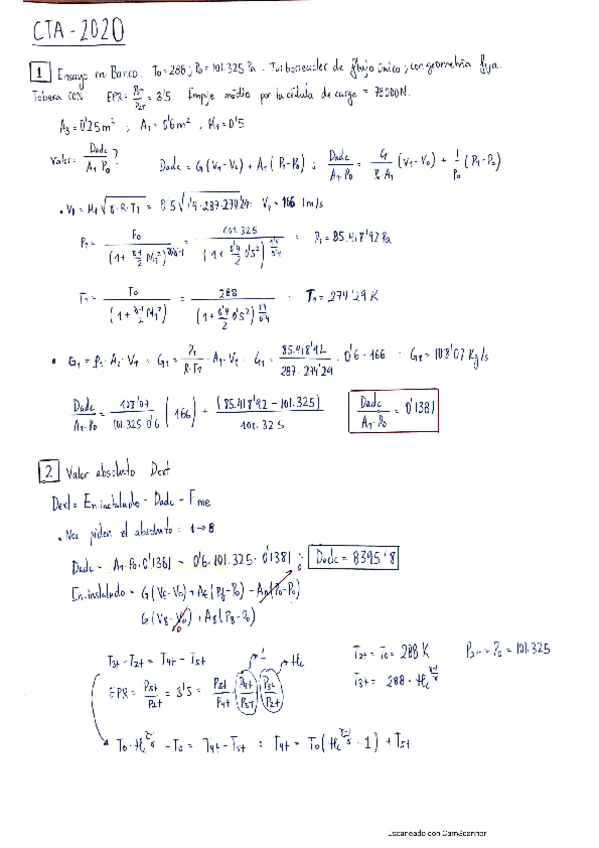 CTA - 2020
1 Ensayo en Banco. T0 = 288 ; P0 = 101.325 Pa. Turborreactor de flujo único ; con geometría fija.
Tobera con EPR = P5t/P2t = 3'5 Empuje medido por la célula de carga = 78000N.
A3 = 0'25 m² ; A1 = 0'6 m² , M1 = 0'5
Valor: Dadc/(A1·P0) ? Dadc = G(V1-V0) + A1(P1-P0) ; Dadc/(A1·P0) = G/(P0·A1) (V1-V0) + 1/P0 (P1-P0)
• V1 = M1 √(γ·R·T1) = 0'5 √(1'4·287·274'29) V1 = 166 m/s
P1 = P0/(1 + (γ-1)/2 M1²)^(γ/γ-1) = 101.325/(1 + 0'4/2 0'5²)^(1'4/0'4) : P1 = 85.418'92 Pa
T1 = T0/(1 + (γ-1)/2 M1²) = 288/(1 + 0'4/2 0'5²) : T1 = 274'29 K
• G1 = ρ1·A1·V1 : G1 = P1/(R·T1) · A1·V1 : G1 = 85.418'92/(287·274'29) · 0'6·166 : G1 = 108'07 Kg/s
Dadc/(A1·P0) = 108'07/(101.325·0'6) (166) + (85.418'92 - 101.325)/101.325 Dadc/(A1·P0) = 0'1381
2 Valor absoluto Dext
Dext = En.instalado - Dadc - Fme
• Nos piden el absoluto : 1→8
Dadc = A1·P0·0'1381 = 0'6·101.325·0'1381 : Dadc = 8395'8
En.instalado = G(VE-V0) + AE(PE-P0) - A0(P0-P0)
G(V8-V0) + A8(P8-P0)
T3t - T2t = T4t - T5t T2t = T0 = 288 K P2t = P0 = 101.325
EPR = P5t/P2t = 3'5 = P5t/P4t · P4t/P3t · P3t/P2t T3t = 288·πc^(γ-1/γ)
T0·πc^(γ-1/γ) - T0 = T4t - T5t : T4t = T0(πc^(γ-1/γ) - 1) + T5t
Escaneado con CamScanner